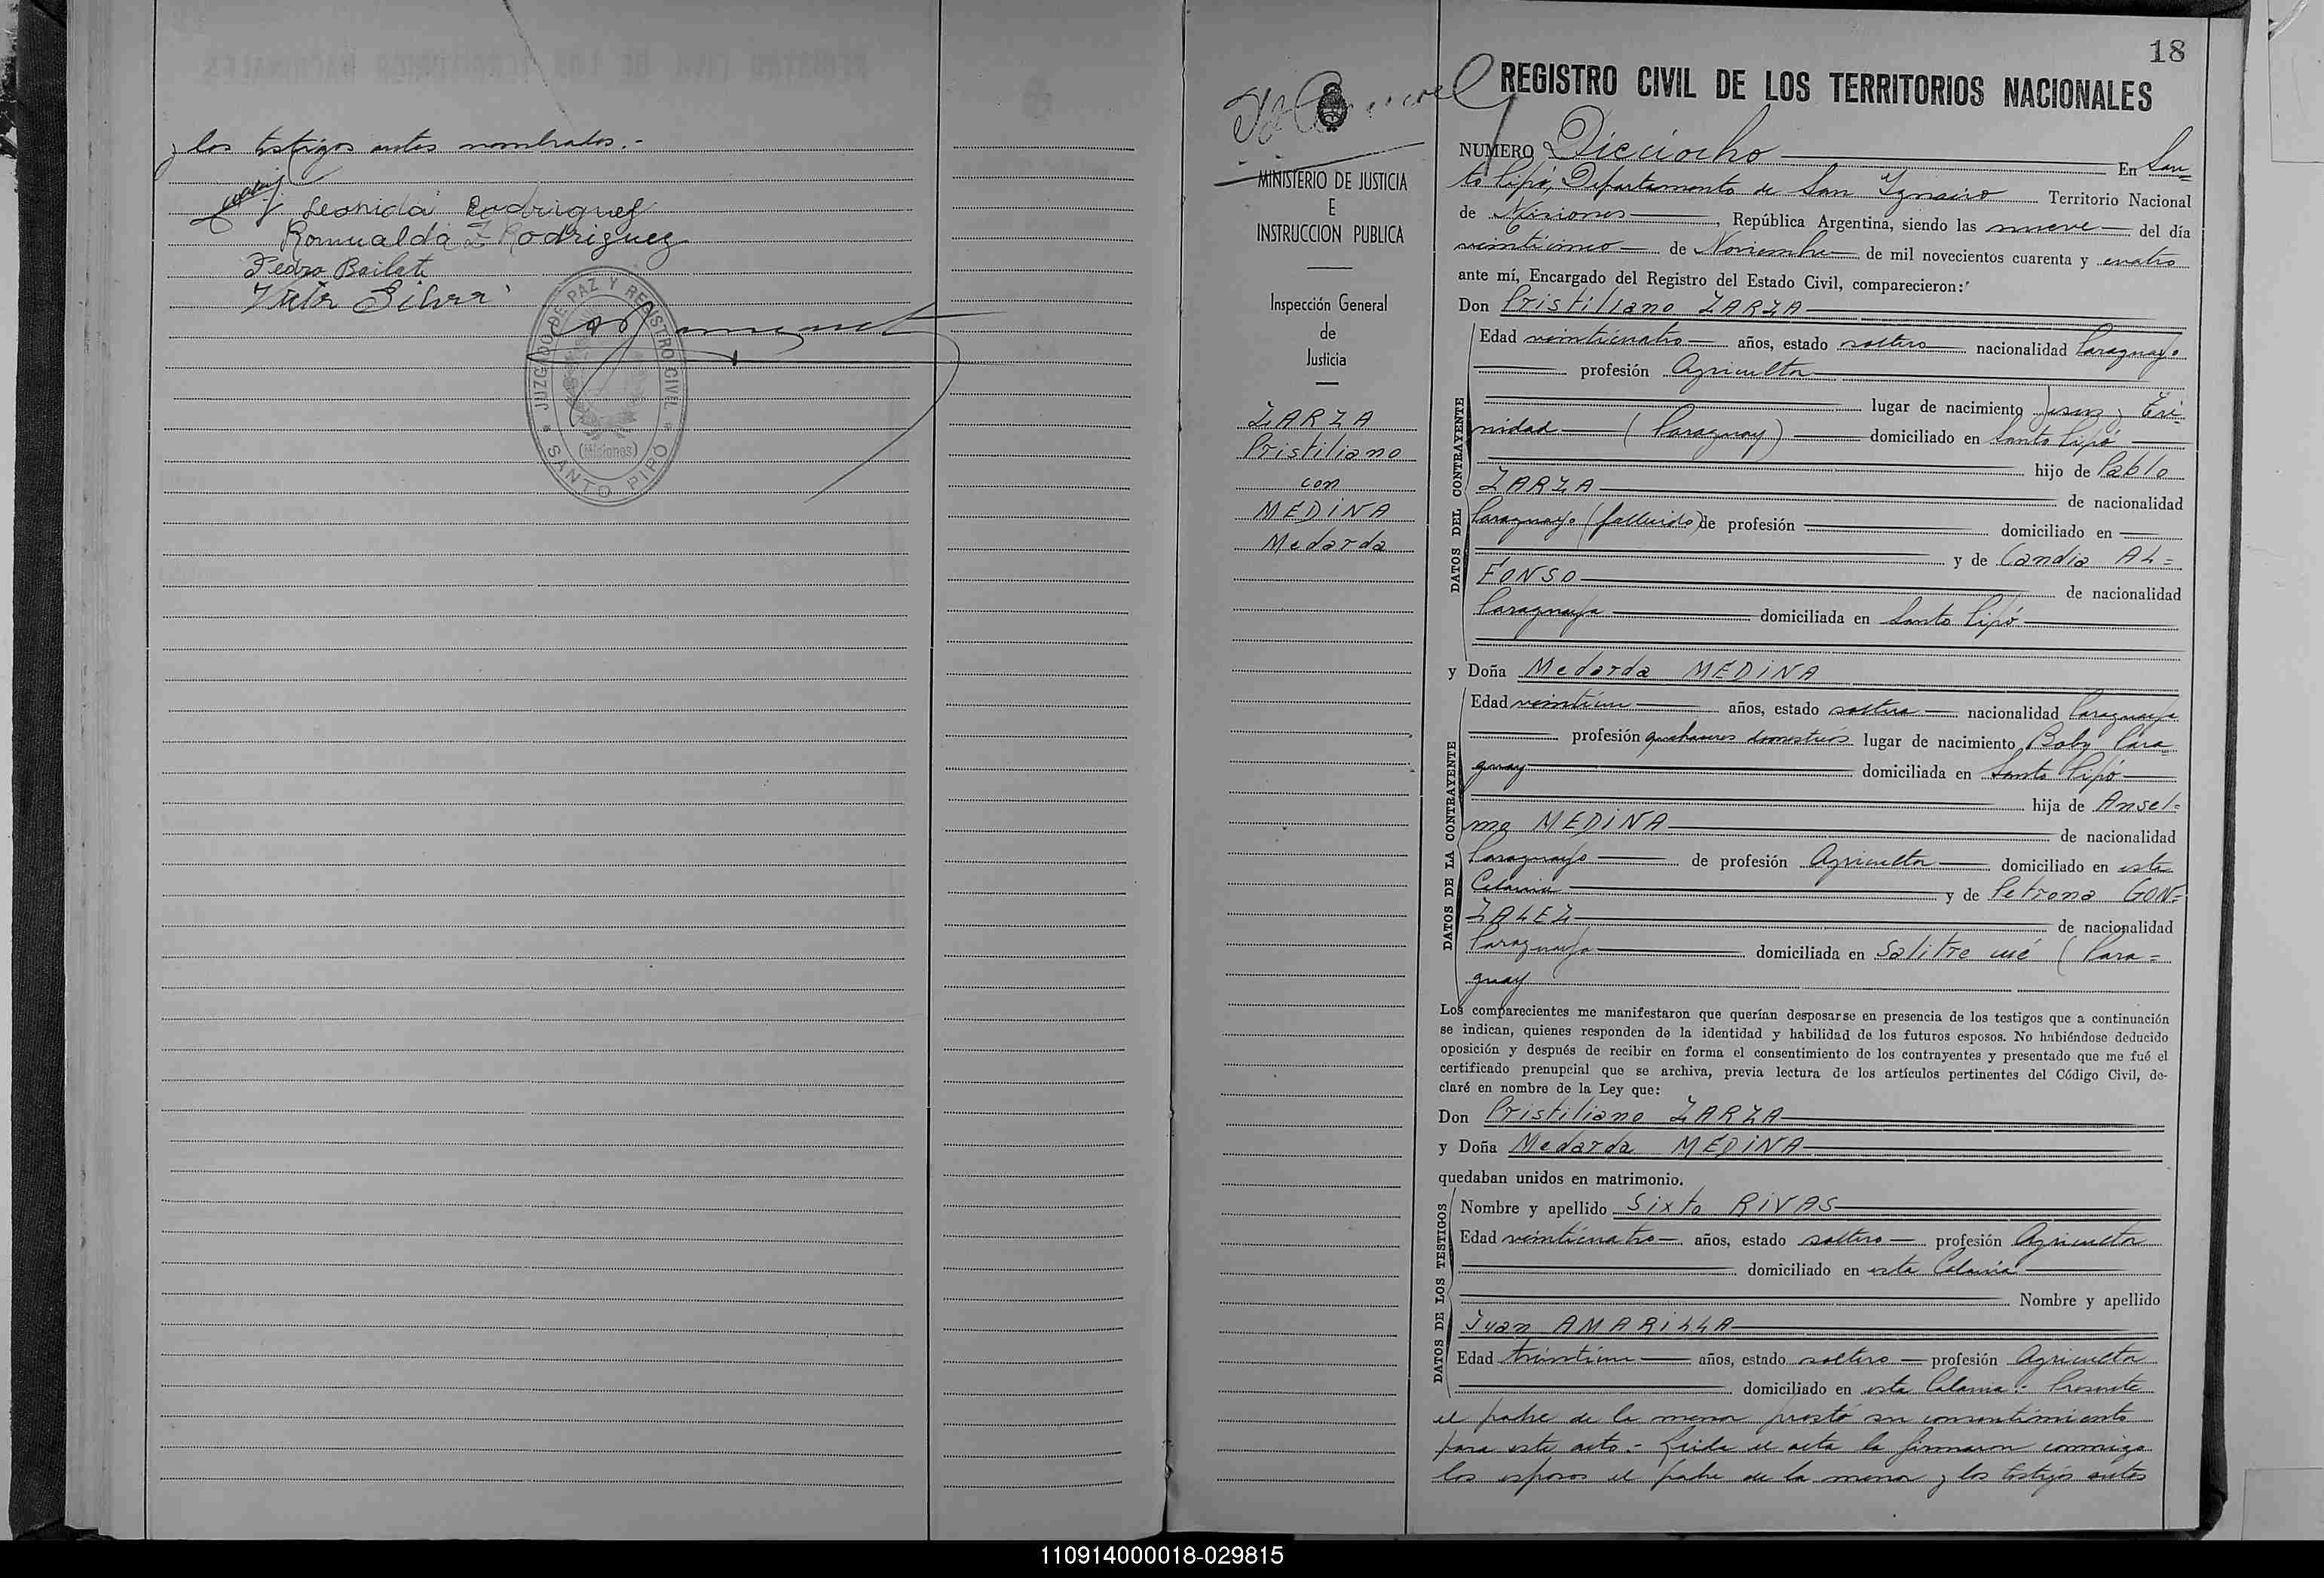 y los testigos antes nombrados.-
Leonida Rodriguez
Romualda Z Rodriguez
Pedro Bailate
Silva
JUZGADO DE PAZ Y REGISTRO CIVIL
(Misiones)
* SANTO PIPÓ *
18
REGISTRO CIVIL DE LOS TERRITORIOS NACIONALES
MINISTERIO DE JUSTICIA
E
INSTRUCCION PUBLICA
Inspección General
de
Justicia
ZARZA
Pristiliano
con
MEDINA
Medarda
NUMERO Dieciocho En San=
to Pipó, Departamento de San Ygnacio Territorio Nacional
de Misiones, República Argentina, siendo las nueve del día
veinticinco de Noviembre de mil novecientos cuarenta y cuatro
ante mí, Encargado del Registro del Estado Civil, comparecieron:
Don Pristiliano ZARZA
DATOS DEL CONTRAYENTE
Edad veinticuatro años, estado soltero nacionalidad Paraguayo
profesión Agricultor
lugar de nacimiento Jesus y Tri-
nidad (Paraguay) domiciliado en Santo Pipó
hijo de Pablo
ZARZA de nacionalidad
Paraguayo (fallecido) de profesión domiciliado en
y de Candia AL=
FONSO de nacionalidad
Paraguaya domiciliada en Santo Pipó
y Doña Medarda MEDINA
DATOS DE LA CONTRAYENTE
Edad veintiun años, estado soltera nacionalidad Paraguaya
profesión quehaceres domesticos lugar de nacimiento Boby Para=
guay domiciliada en Santo Pipó
hija de Ansel=
mo MEDINA de nacionalidad
Paraguayo de profesión Agricultor domiciliado en esta
Colonia y de Petrona GON=
ZALEZ de nacionalidad
Paraguaya domiciliada en Salitre cué (Para=
guay
Los comparecientes me manifestaron que querían desposarse en presencia de los testigos que a continuación
se indican, quienes responden de la identidad y habilidad de los futuros esposos. No habiéndose deducido
oposición y después de recibir en forma el consentimiento de los contrayentes y presentado que me fué el
certificado prenupcial que se archiva, previa lectura de los artículos pertinentes del Código Civil, de-
claré en nombre de la Ley que:
Don Pristiliano ZARZA
y Doña Medarda MEDINA
quedaban unidos en matrimonio.
DATOS DE LOS TESTIGOS
Nombre y apellido Sixto RIVAS
Edad veinticuatro años, estado soltero profesión Agricultor
domiciliado en esta Colonia
Nombre y apellido
Juan AMARILLA
Edad treintiun años, estado soltero profesión Agricultor
domiciliado en esta Colonia.- Presente
el padre de la menor prestó su consentimiento
para este acto.- Leida el acta la firmaron conmigo
los esposos el padre de la menor y los testigos antes
110914000018-029815